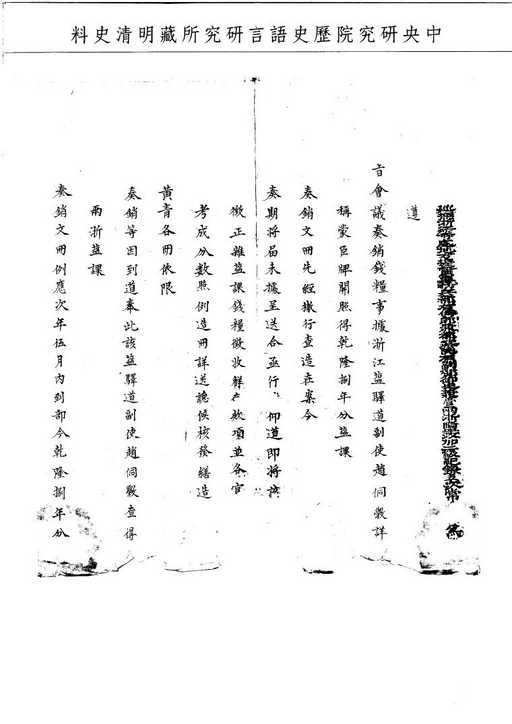 中央研究院歷史語言研究所藏明清史料
為
遵
旨會議奏銷錢糧事據浙江鹽驛道副使趙侗斆詳
稱蒙臣牌開照得乾隆捌年分鹽課
奏銷文冊先經檄行查造在案今
奏期將屆未據呈送合亟行仰道即將該
徵正雜鹽課錢糧徵收解款項並各官
考成分數照例造冊詳送聽候核發繕造
黃青各冊依限
奏銷等因到道奉此該鹽驛道副使趙侗斆查得
兩浙鹽課
奏銷文冊例應次年伍月內到部今乾隆捌年分